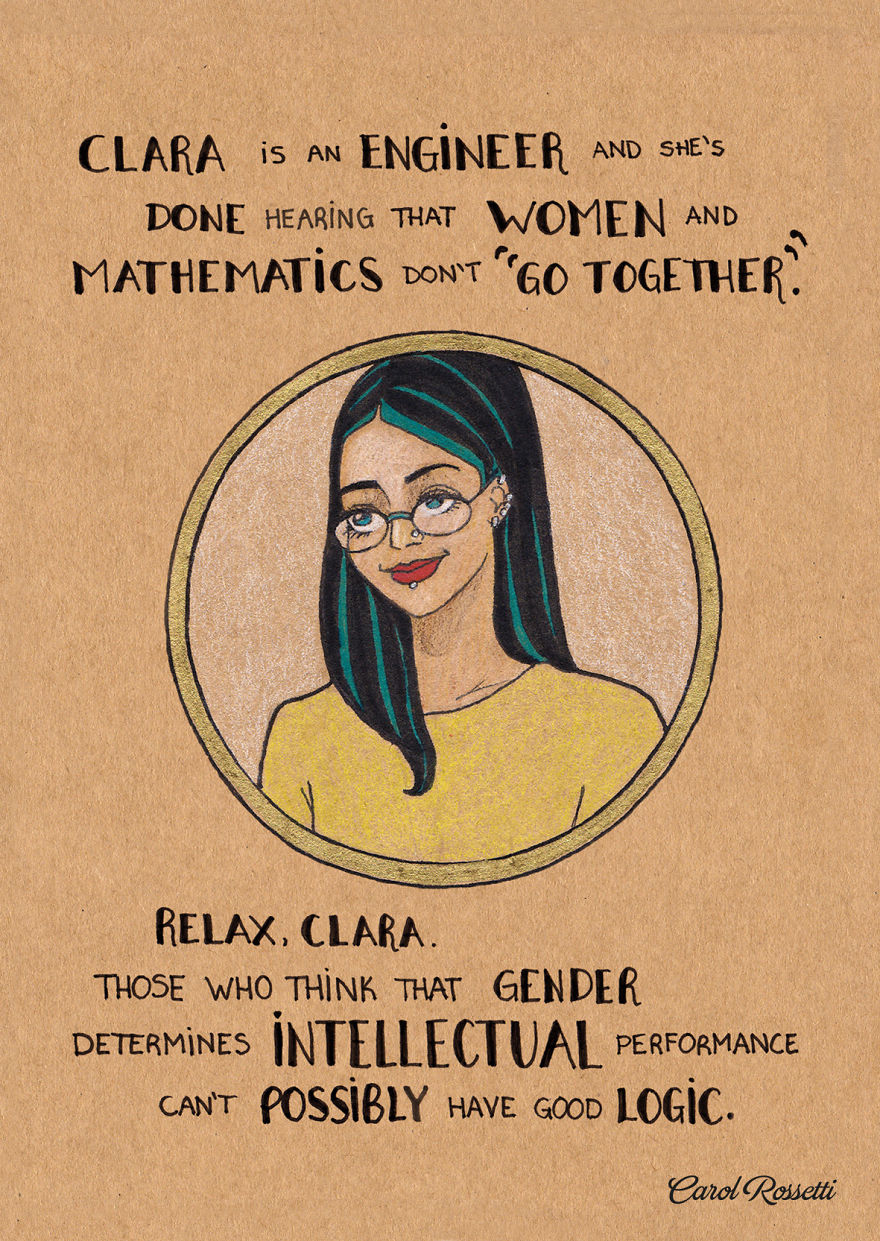 CLARA is AN ENGiNEER AND SHE'S
DONE HEARiNG THAT WOMEN AND
MATHEMATiCS DON'T "GO TOGETHER".
RELAX, CLARA.
THOSE WHO THiNK THAT GENDER
DETERMiNES iNTELLECTUAL PERFORMANCE
CAN'T POSSiBLY HAVE GOOD LOGiC.
Carol Rossetti